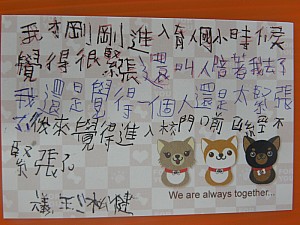 我才剛剛進入育人小時候
覺得很緊張還叫人陪著我去了
我還是覺得一個人還是太緊張
了後來覺得進入校門口前已經不
緊張了
We are always together...